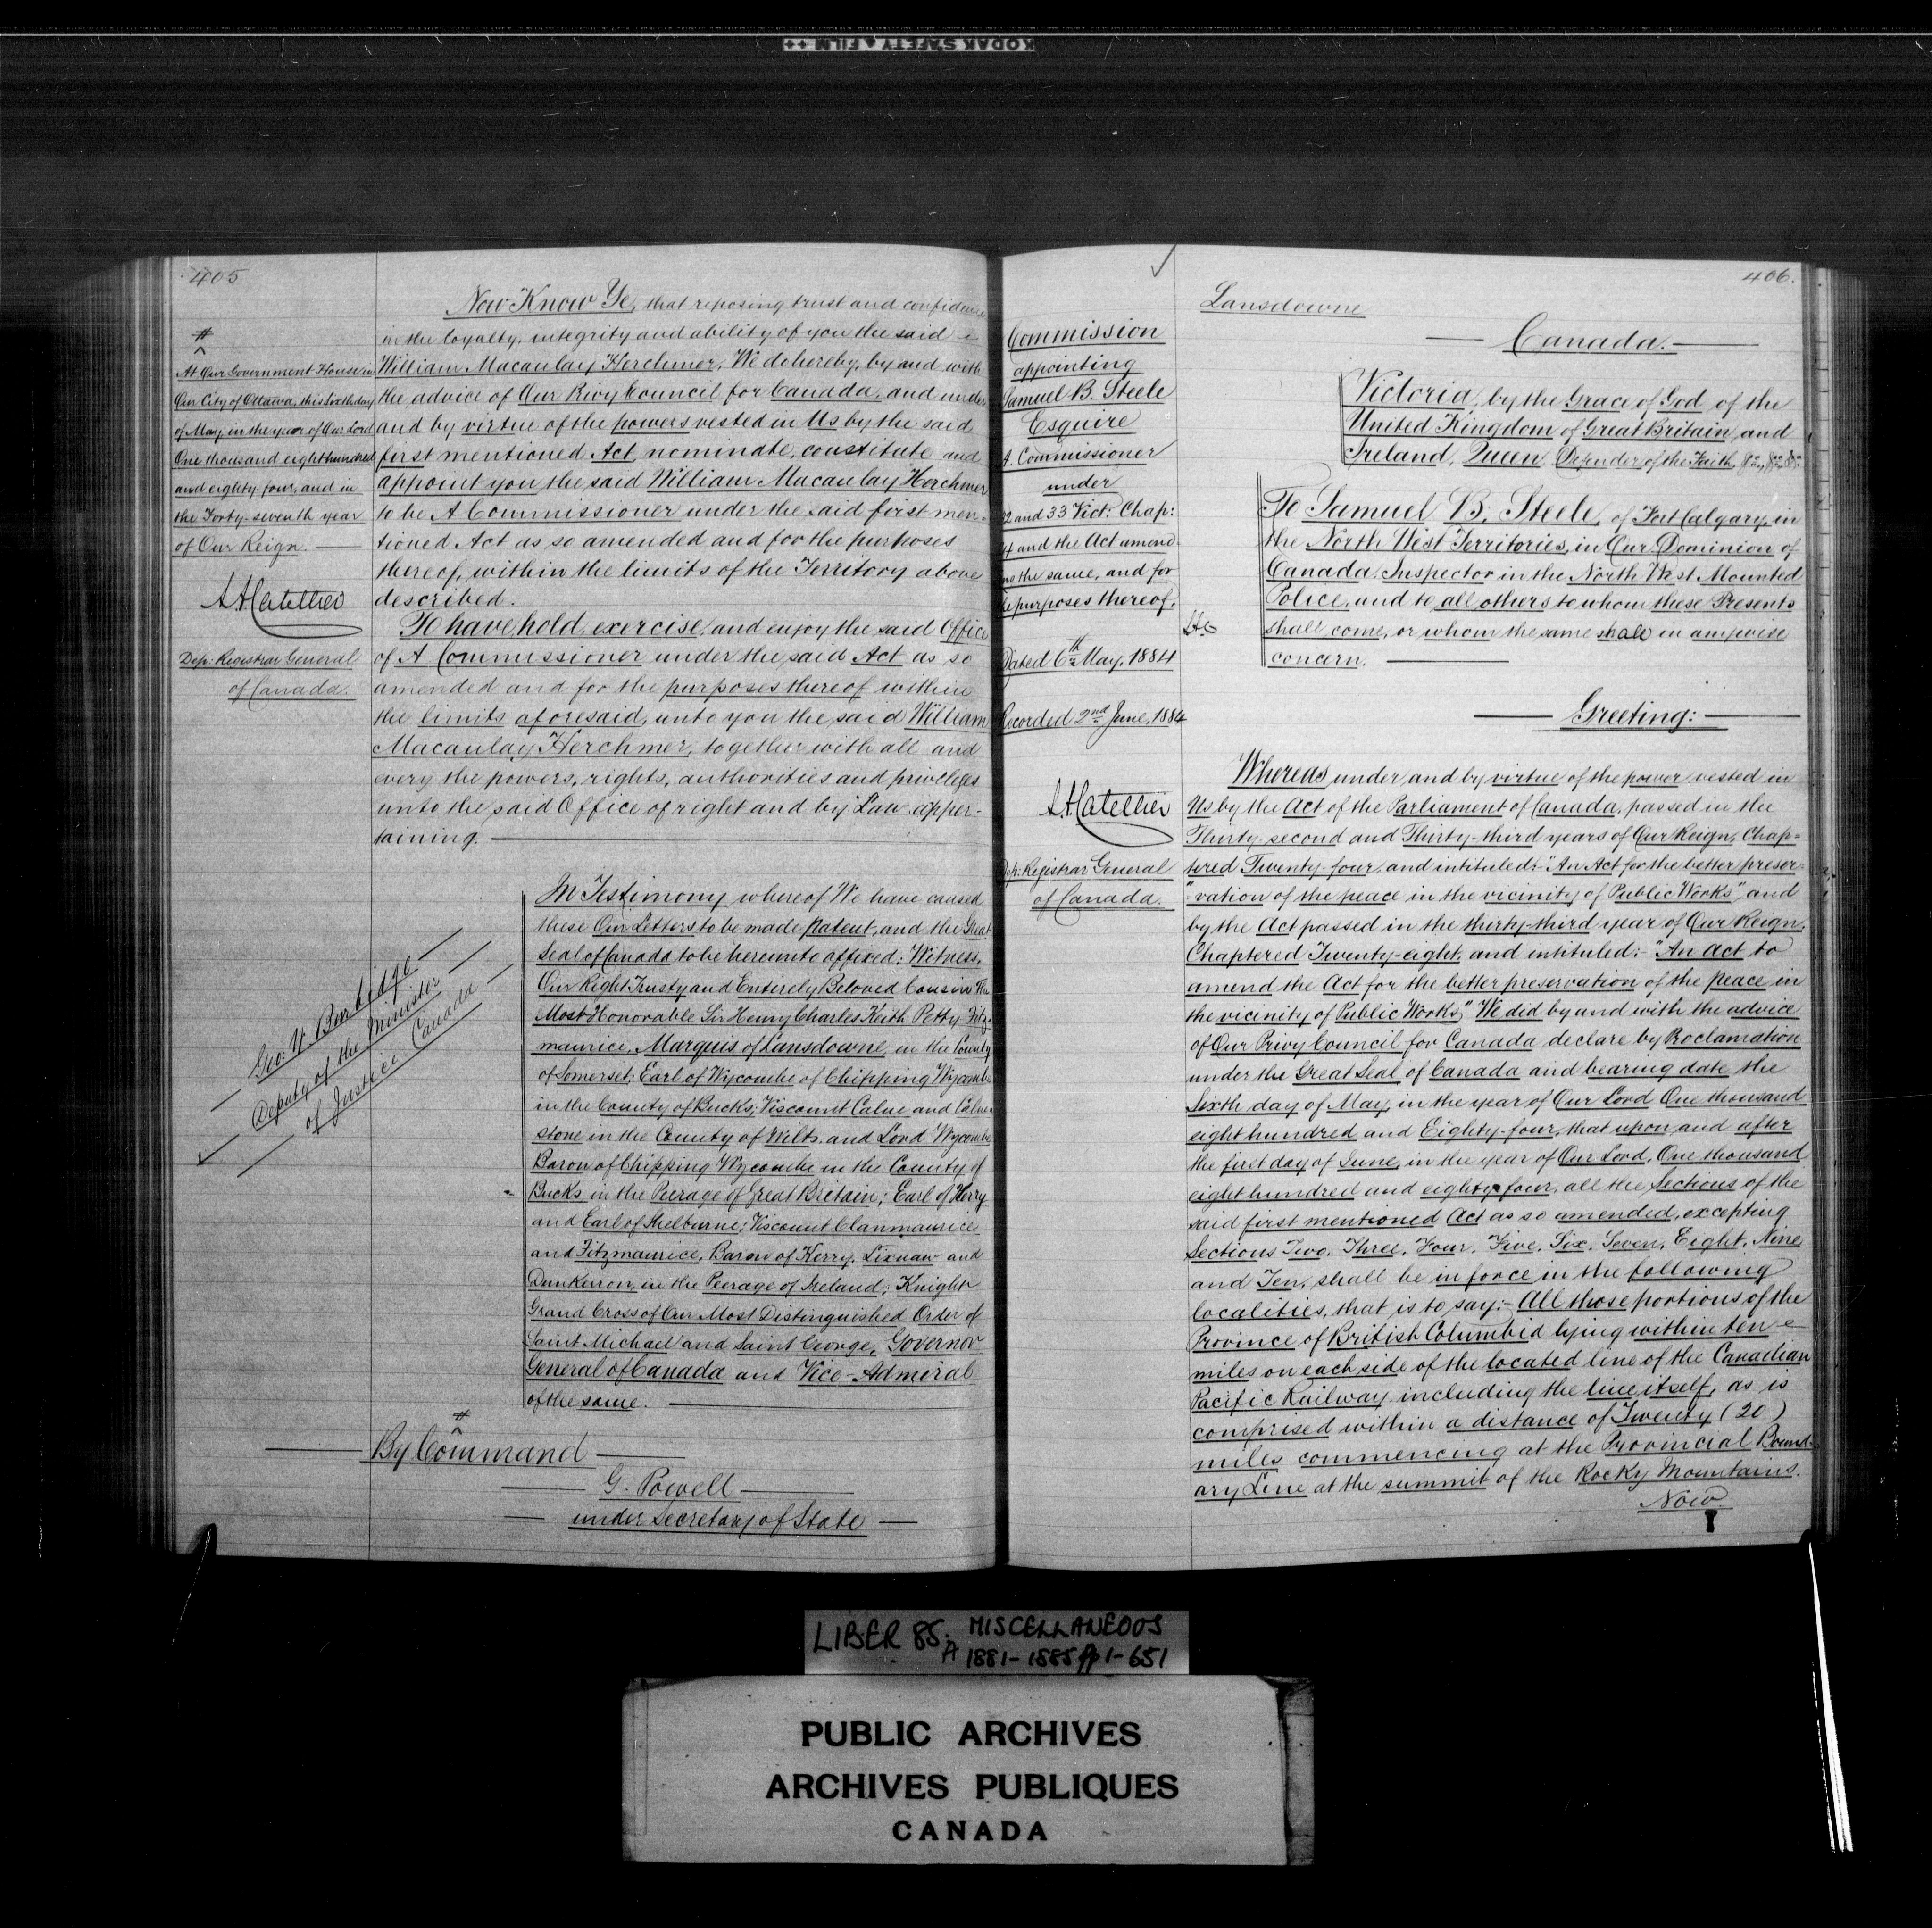 KODAK SAFETY FILM
405
Now Know Ye, that reposing trust and confidence
in the loyalty, integrity and ability of you the said
William Macaulay Herchmer, We do hereby, by and with
the advice of Our Privy Council for Canada, and under
and by virtue of the powers vested in Us by the said
first mentioned Act, nominate, constitute and
appoint you the said William Macaulay Herchmer
to be A Commissioner under the said first men-
tioned Act as so amended and for the purposes
thereof, within the limits of the Territory above
described.
To have hold, exercise, and enjoy the said Office
of A Commissioner under the said Act as so
amended and for the purposes thereof within
the limits aforesaid, unto you the said William
Macaulay Herchmer, together with all and
every the powers, rights, authorities and privileges
unto the said Office of right and by Law apper-
taining.
In Testimony whereof We have caused
these Our Letters to be made Patent, and the Great
Seal of Canada to be hereunto affixed: Witness,
Our Right Trusty and Entirely Beloved Cousin The
Most Honorable Sir Henry Charles Keith Petty Fitz-
maurice, Marquis of Lansdowne, in the County
of Somerset; Earl of Wycombe of Chipping Wycombe
in the County of Bucks; Viscount Calne and Calne-
stone in the County of Wilts. and Lord Wycombe
Baron of Chipping Wycombe in the County of
Bucks in the Peerage of Great Britain; Earl of Kerry
and Earl of Shelburne; Viscount Clanmaurice
and Fitzmaurice, Baron of Kerry, Lixnaw and
Dunkerron, in the Peerage of Ireland; Knight
Grand Cross of Our Most Distinguished Order of
Saint Michael and Saint George, Governor
General of Canada and Vice-Admiral
of the same.
#
By Command
G. Powell
under Secretary of State
#
^
At Our Government House in
Our City of Ottawa, this Sixth day
of May in the year of Our Lord
One thousand eight hundred
and eighty-four, and in
the Forty-seventh year
of Our Reign.
A. Catellier
Dep: Registrar General
of Canada.
Geo: W. Burbidge
Deputy of the Minister
of Justice Canada
406.
Commission
appointing
Samuel B. Steele
Esquire
A. Commissioner
under
32 and 33 Vict: Chap:
24 and the Act amend-
ing the same, and for
the purposes thereof.
Dated 6th May, 1884
Recorded 2nd June, 1884
L.A. Catellier
Dep: Registrar General
of Canada.
Lansdowne
Canada.
Victoria, by the Grace of God, of the
United Kingdom of Great Britain, and
Ireland, Queen, Defender of the Faith, &c., &c., &c.
To Samuel B. Steele, of Fort Calgary, in
the North West Territories, in Our Dominion of
Canada, Inspector in the North West Mounted
Police, and to all others to whom these Presents
shall come, or whom the same shall in anywise
concern.
Greeting:
Whereas, under and by virtue of the power vested in
Us by the Act of the Parliament of Canada, passed in the
Thirty-second and Thirty-third years of Our Reign, Chap=
tered Twenty-four, and intituled:- "An Act for the better preser-
"vation of the peace in the vicinity of Public Works", and
by the Act passed in the thirty-third year of Our Reign,
Chaptered Twenty-eight, and intituled:- "An Act to
amend the Act for the better preservation of the peace in
the vicinity of Public Works," We did by and with the advice
of Our Privy Council for Canada declare by Proclamation
under the Great Seal of Canada and bearing date the
Sixth day of May, in the year of Our Lord One thousand
eight hundred and Eighty-four, that upon and after
the first day of June, in the year of Our Lord, One thousand
eight hundred and eighty-four, all the Sections of the
said first mentioned Act as so amended, excepting
Sections Two, Three, Four, Five, Six, Seven, Eight, Nine
and Ten, shall be in force in the following
localities, that is to say:- All those portions of the
Province of British Columbia lying within ten
miles on each side of the located line of the Canadian
Pacific Railway, including the line itself, as is
comprised within a distance of Twenty (20)
miles commencing at the Provincial Bound-
ary Line at the summit of the Rocky Mountains.
Now
LIBER 85. A MISCELLANEOUS
1881-1885 pp 1-651
PUBLIC ARCHIVES
ARCHIVES PUBLIQUES
CANADA